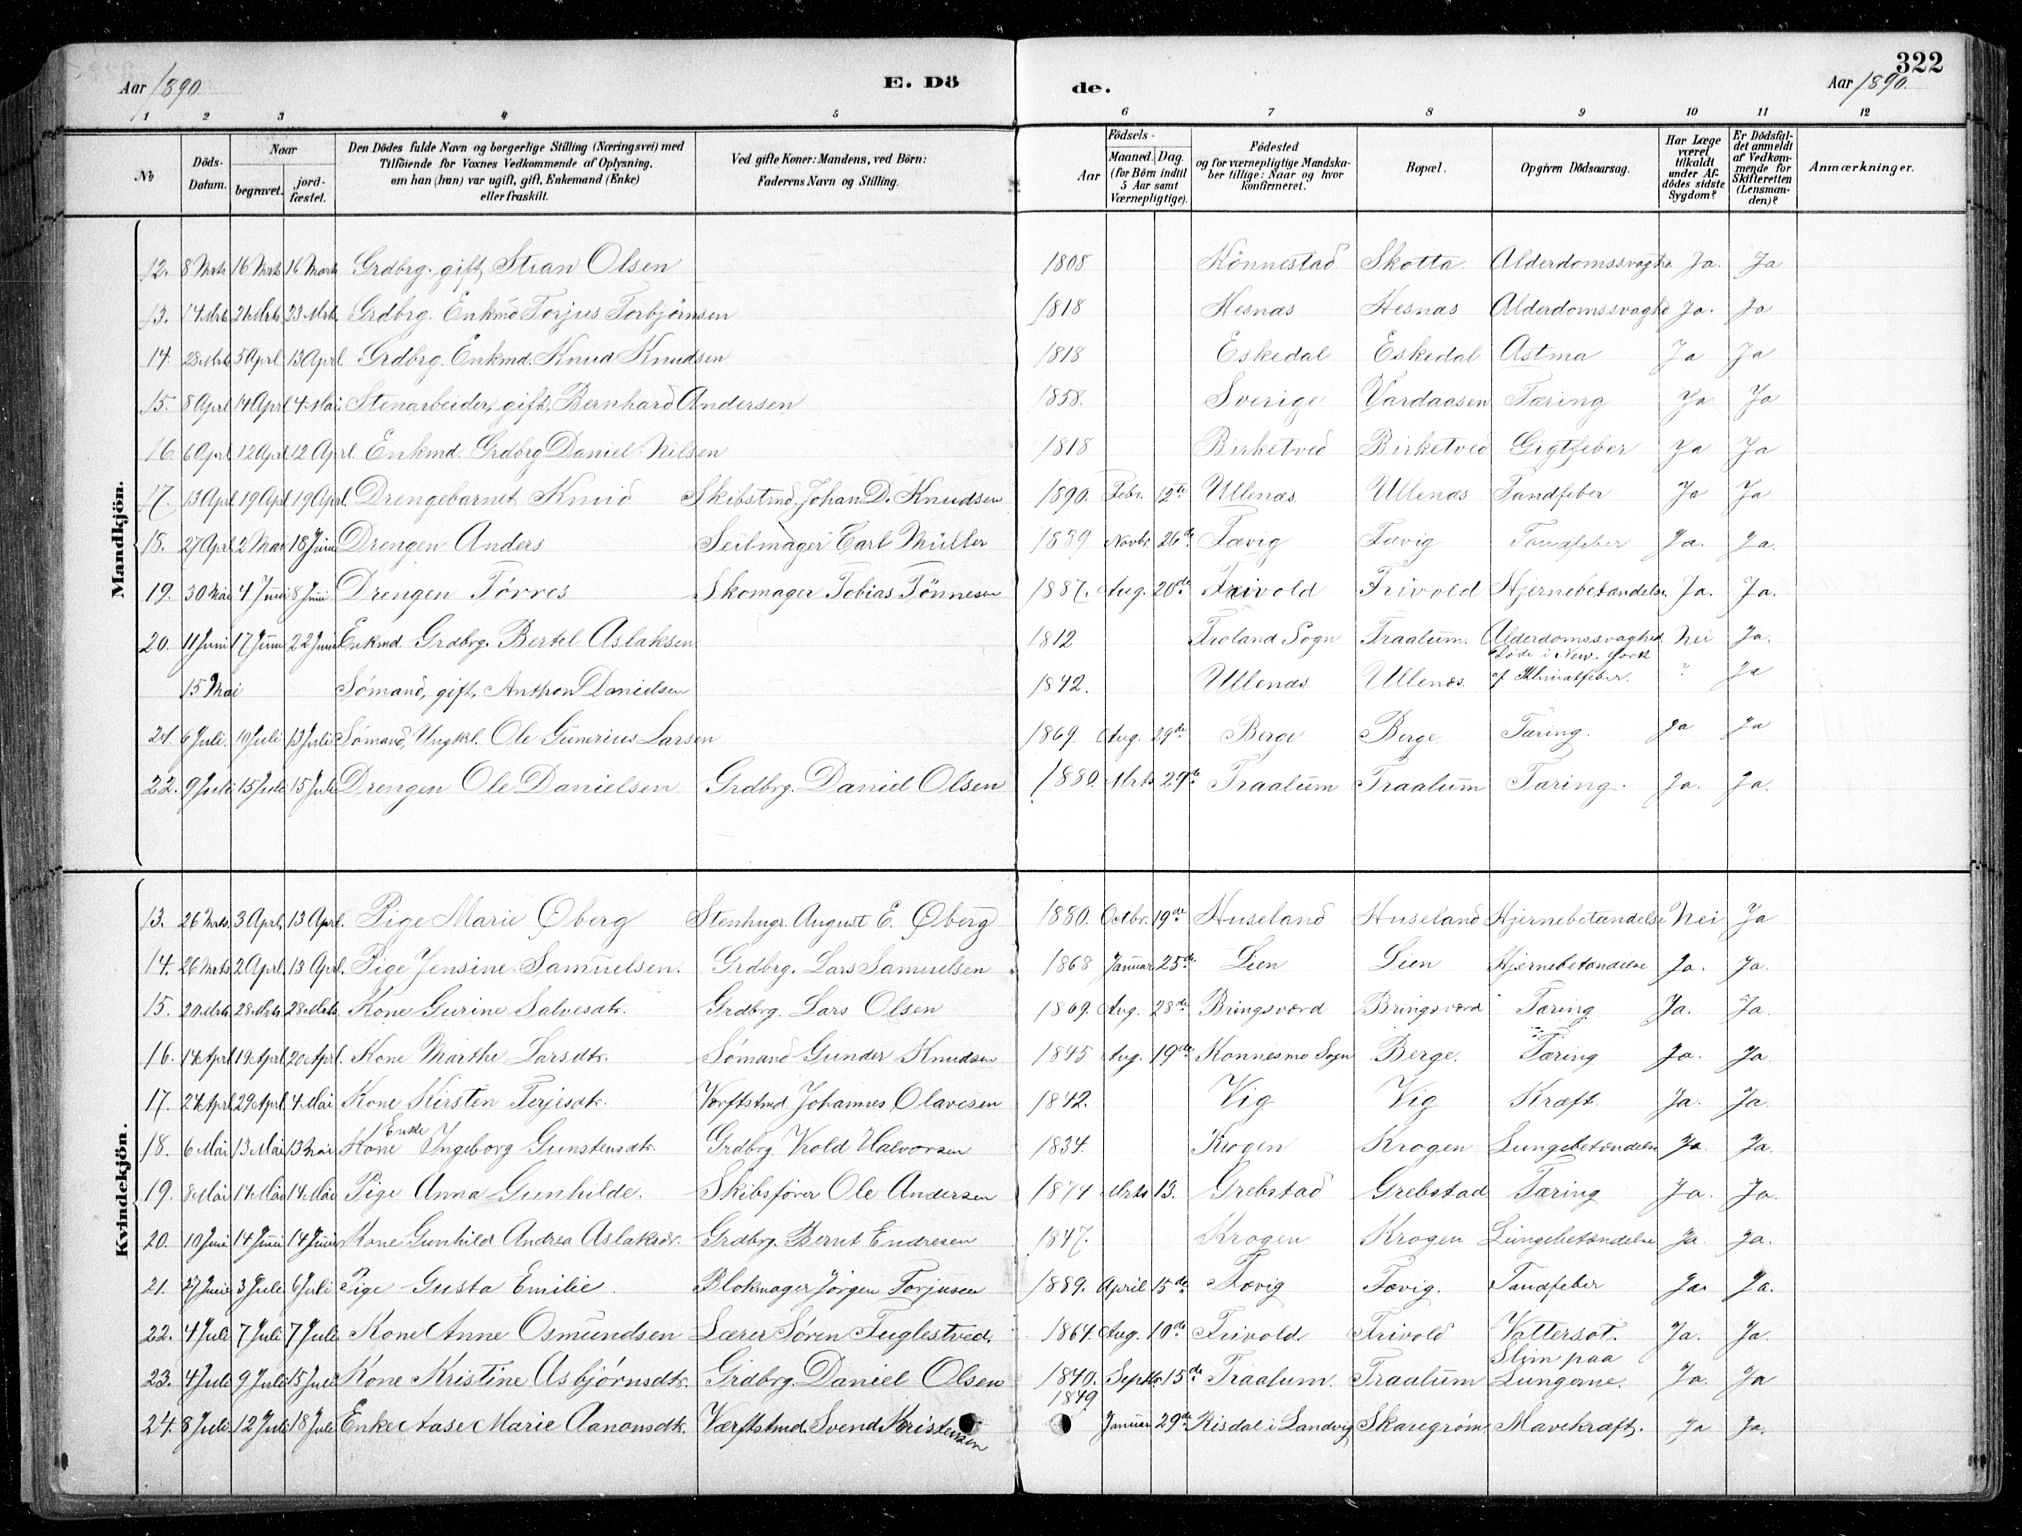 322
Aar 1890. E. Dö de. Aar 1890.
1 2 3 4 5 6 7 8 9 10 11 12
№ Döds-Datum. Naar begravet. jord-fæstet. Den Dödes fulde Navn og borgerlige Stilling (Næringsvei) med Tilföiende for Voxnes Vedkommende af Oplysning. om han (hun) var ugift, gift, Enkemand (Enke) eller fraskilt. Ved gifte Koner: Mandens, ved Börn: Faderens Navn og Stilling. Födsels- Aar Maaned. Dag. (for Börn indtil 5 Aar samt Værnepligtige). Födested og for værnepligtige Mandskaber tillige: Naar og hvor konfirmeret. Bopæl. Opgiven Dödsaarsag. Har Læge været tilkaldt under Afdödes sidste Sygdom? Er Dödsfaldet anmeldt af Vedkommende for Skifteretten (Lensmanden)? Anmærkninger.
Mandkjön.
12. 8 Mrts 16 Mrts 16 Marts Grdbrg. gift, Stian Olsen 1808 Könnestad Skotta Alderdomssvaghe Ja. Ja
13. 14 Mrts 21 Mrts 23 Mrts. Grdbrg. Enkmd Torjus Torbjörnsen 1818 Hesnæs Hesnæs Alderdomssvaghe Ja. Ja
14. 28 Mrts 5 Aprl 13 Aprl. Grdbrg. Enkmd. Knud Knudsen 1818 Eskedal Eskedal Astma Ja Ja
15. 8 Aprl 14 Aprl 4 Mai Stenarbeider, gift, Bernhard Andersen 1858. Sverige Vardaasen Tæring Ja Ja
16. 6 Aprl 12 Aprl 12 Aprl. Enkmd. Grdbrg Daniel Nilsen 1818 Birketved Birketved Gigtfeber Ja Ja
17. 13 Aprl 19 Aprl 19 Aprl. Drengebarnet Knud Skibstmd. Johan D. Knudsen 1890. Febr. 12te Ullenæs Ullenæs Tandfeber Ja Ja
18. 27 Aprl 2 Mai 18 Juni Drengen Anders Seilmager Carl Müller 1889 Novbr. 26de Fævig Fævig Tandfeber Ja. Ja.
19. 30 Mai 4 Juni 8 Juni Drengen Törres Skomager Tobias Tönnesen 1887. Aug. 20de Frivold Frivold Hjernebetændelse. Ja. Ja.
20. 11 Juni 17 Juni 22 Juni Enkmd. Grdbrg. Bertel Aslaksen 1812 Froland Sogn Traalum. Alderdomssvaghed. Nei Ja.
15 Mai Sömand, gift, Anthon Danielsen 1842. Ullenæs Ullenæs. Döde i New York af Klimatfeber. ? Ja
21. 6 Juli. 10 Juli 13 Juli Sömand, Ungkrl. Ole Gunerius Larsen 1869. Aug. 29de Berge Berge. Tæring. Ja Ja
22. 9 Juli 15 Juli 15 Juli Drengen Ole Danielsen Grdbrg. Daniel Olsen 1880. Mrts 29de Traalum Traalum Tæring. Ja. Ja.
Kvindekjön.
13. 26 Mrts. 3 Aprl. 13 Aprl. Pige Marie Öberg Stenhugr. August E. Öberg 1880. Octbr. 19de Huseland Huseland Hjernebetændelse Nei Ja
14. 26 Mrts 2 Aprl. 13 Aprl. Pige Jensine Samuelsen. Grdbrg. Lars Samuelsen 1868 Januar 25de Lien Lien Hjernebetændelse Ja. Ja.
15. 20 Mrts 28 Mrts 28 Mrts. Kone Gurine Salvesdtr. Grdbrg. Lars Olsen 1869. Aug. 28de Bringsværd Bringsværd Tæring Ja. Ja.
16. 14 Aprl 19 Aprl 20 Aprl. Kone Marthe Larsdtr. Sömand Gunder Knudsen 1845 Aug. 19de Konnesmo Sogn Berge. Tæring Ja. Ja.
17. 24 Aprl 29 Aprl. 4 Mai Kone Kirsten Terjesdtr. Værftstmd. Johannes Olavesen 1842. Vig Vig Kræft. Ja. Ja.
18. 6 Mai 13 Mai 13 Mai Kone Enke Ingeborg Gunstensdtr. Grdbrg. Vrold Halvorsen 1834. Krogen Krogen Lungebetændelse Ja Ja.
19. 8 Mai 14 Mai 14 Mai Pige Anna Gunhilde. Skibsförer Ole Andersen 1874 Mrts 13. Grebstad Grebstad Tæring Ja. Ja.
20. 10 Juni 14 Juni 14 Juni Kone Gunhild Andrea Aslaksdr. Grdbrg. Bernt Endresen 1847. Krogen Krogen Lungebetændelse Ja. Ja.
21. 27 Juni 3 Juli 6 Juli Pige Gusta Emilie. Blokmager Jörgen Torjusen 1889. April 15de Fævig Fævig. Tandfeber Ja. Ja.
22. 4 Juli 7 Juli 7 Juli Kone Anne Osmundsen Lærer Sören Fuglestved. 1864. Aug. 10de Frivold Frivold Vattersot. Ja. Ja.
23. 4 Juli 9 Juli 15 Juli Kone Kristine Asbjörnsdtr. Grdbrg. Daniel Olsen 1840. Septbr. 15de Traalum. Traalum Slim paa Lungerne. Ja. Ja
24. 8 Juli. 12 Juli 18 Juli Enke Aase Marie Aanonsdtr. Værftstmd. Svend Kristensen 1849 Januar 29de Risdal i Landvig Skaregröm Mavekræft. Ja Ja.